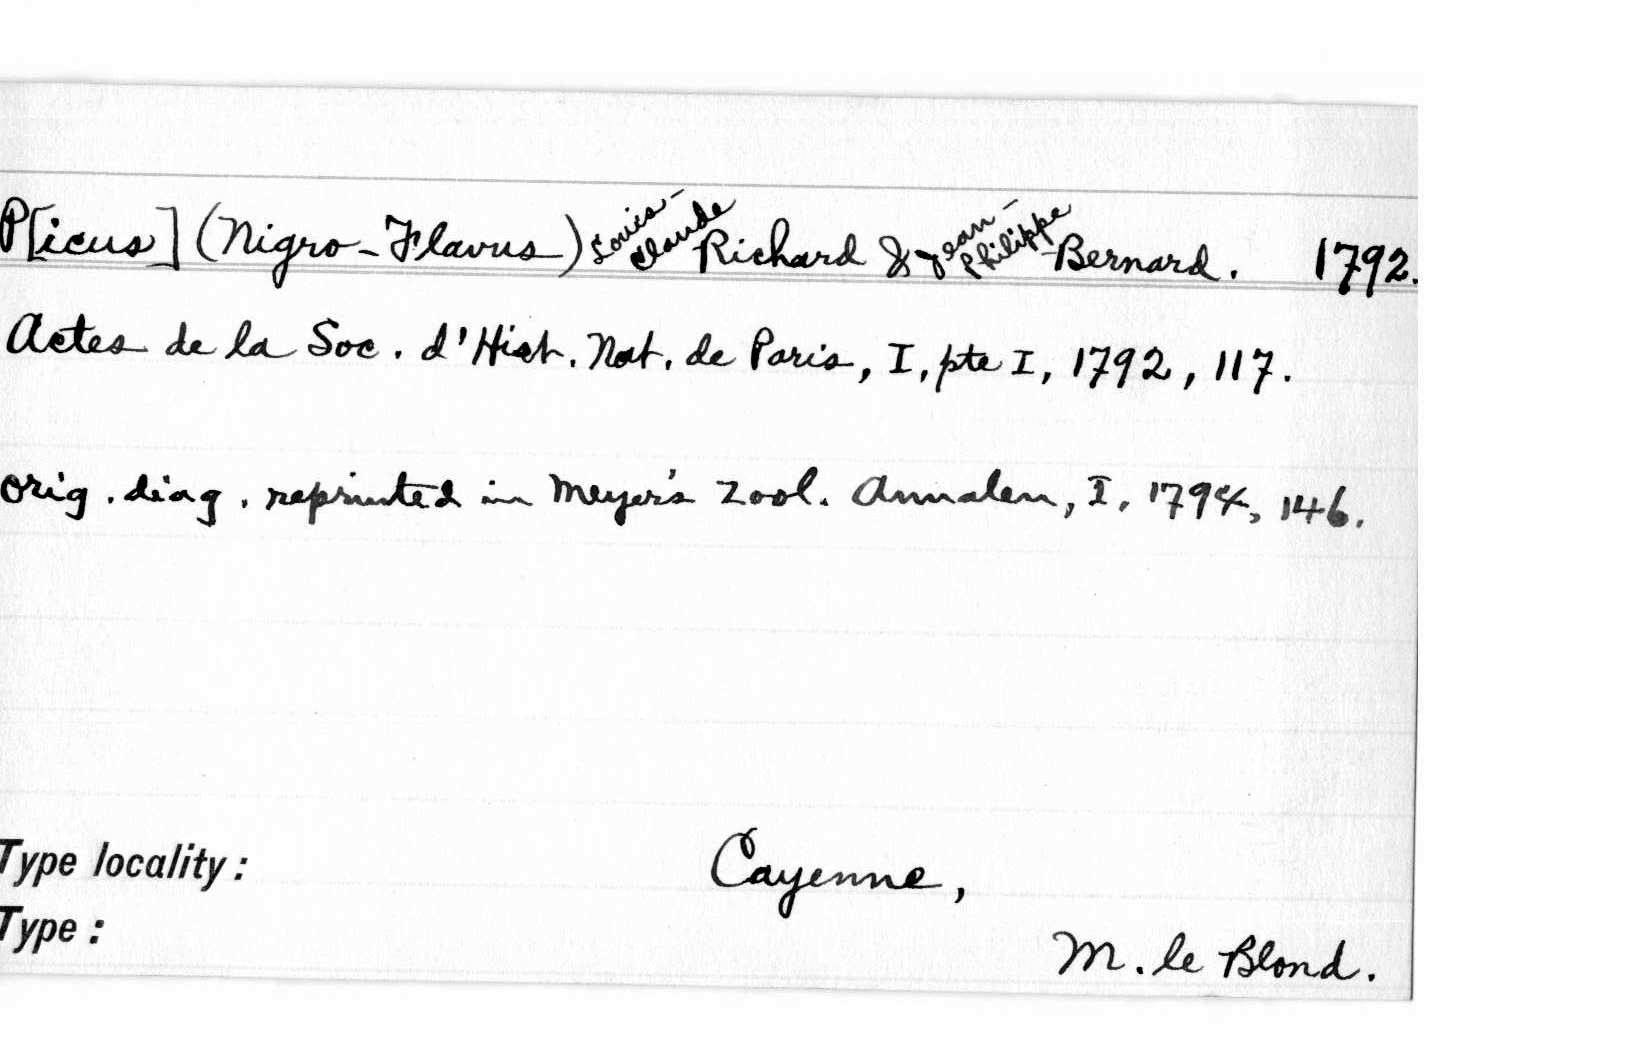 P[icus] (Nigro-Flavus) Louis-Claude Richard & Jean-Philippe Bernard. 1792.
Actes de la Soc. d'Hist. Nat. de Paris, I, pte I, 1792, 117.
orig. diag. reprinted in Meyer's Zool. Annalen, I, 1794, 146.
Type locality: Cayenne,
Type: M. le Blond.